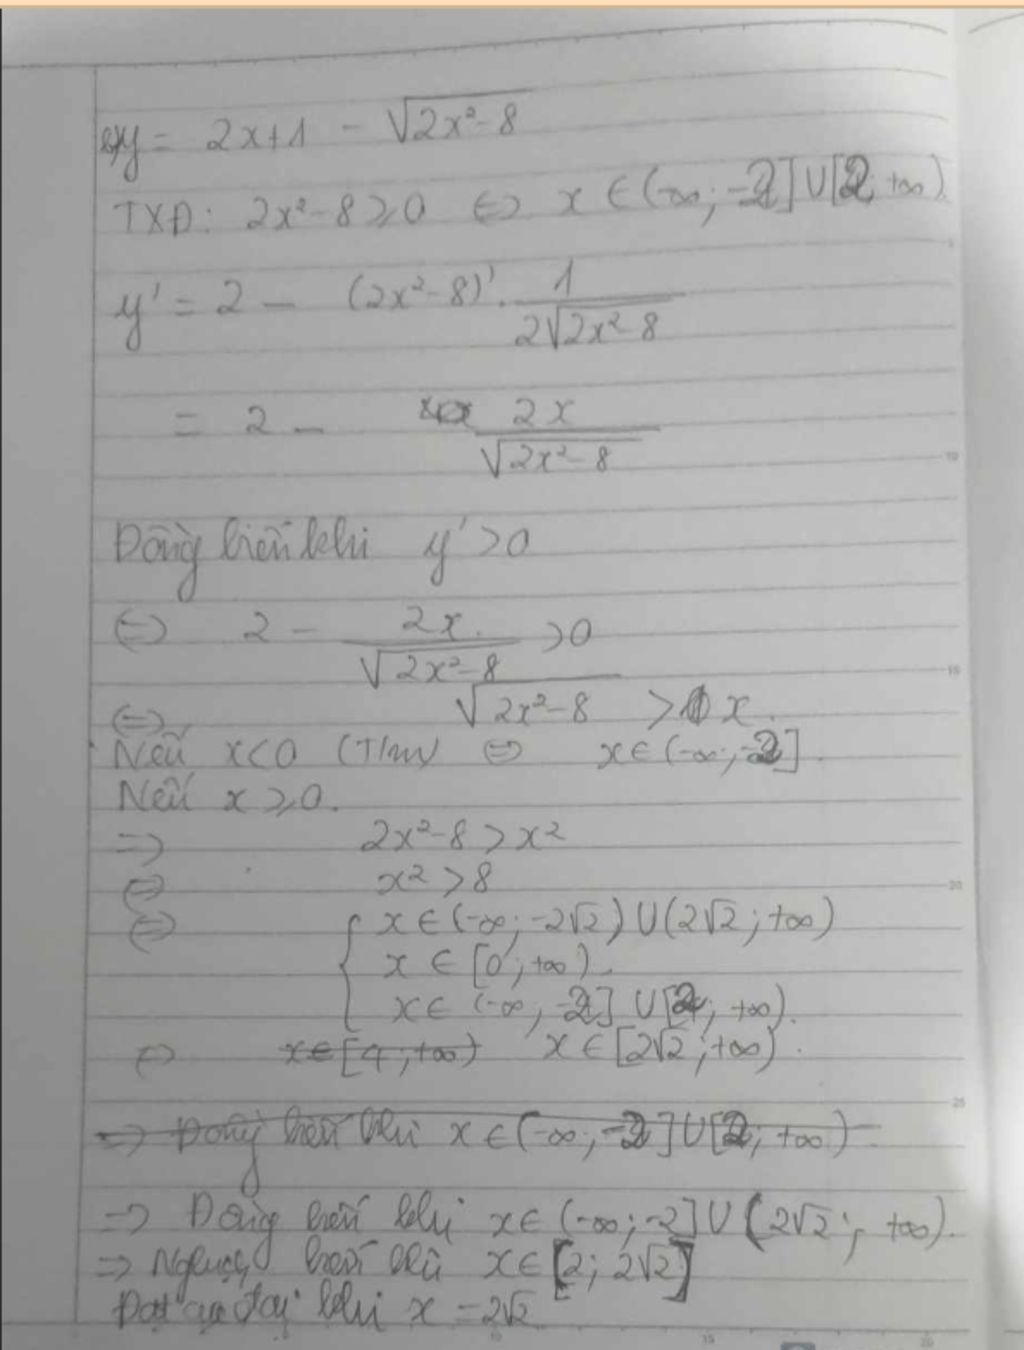 a) y = 2x+1 - √(2x²-8)
TXĐ: 2x²-8 ≥ 0 ⇔ x ∈ (-∞; -2] ∪ [2; +∞).
y' = 2 - (2x²-8)' . 1/(2√(2x²-8))
= 2 - 2x/√(2x²-8)
Đồng biến khi y' > 0
⇔ 2 - 2x/√(2x²-8) > 0
⇔ √(2x²-8) > x.
Nếu x<0 (T/m) ⇔ x ∈ (-∞; -2].
Nếu x ≥ 0.
⇒ 2x²-8 > x²
⇔ x² > 8
⇔ { x ∈ (-∞; -2√2) ∪ (2√2; +∞)
x ∈ [0; +∞).
x ∈ (-∞; -2] ∪ [2; +∞).
⇔ x ∈ [4; +∞) x ∈ [2√2; +∞).
⇒ Đồng biến khi x ∈ (-∞; -2] ∪ [2; +∞)
⇒ Đồng biến khi x ∈ (-∞; -2] ∪ (2√2; +∞).
⇒ Nghịch biến khi x ∈ [2; 2√2]
Đạt cực đại khi x = 2√2